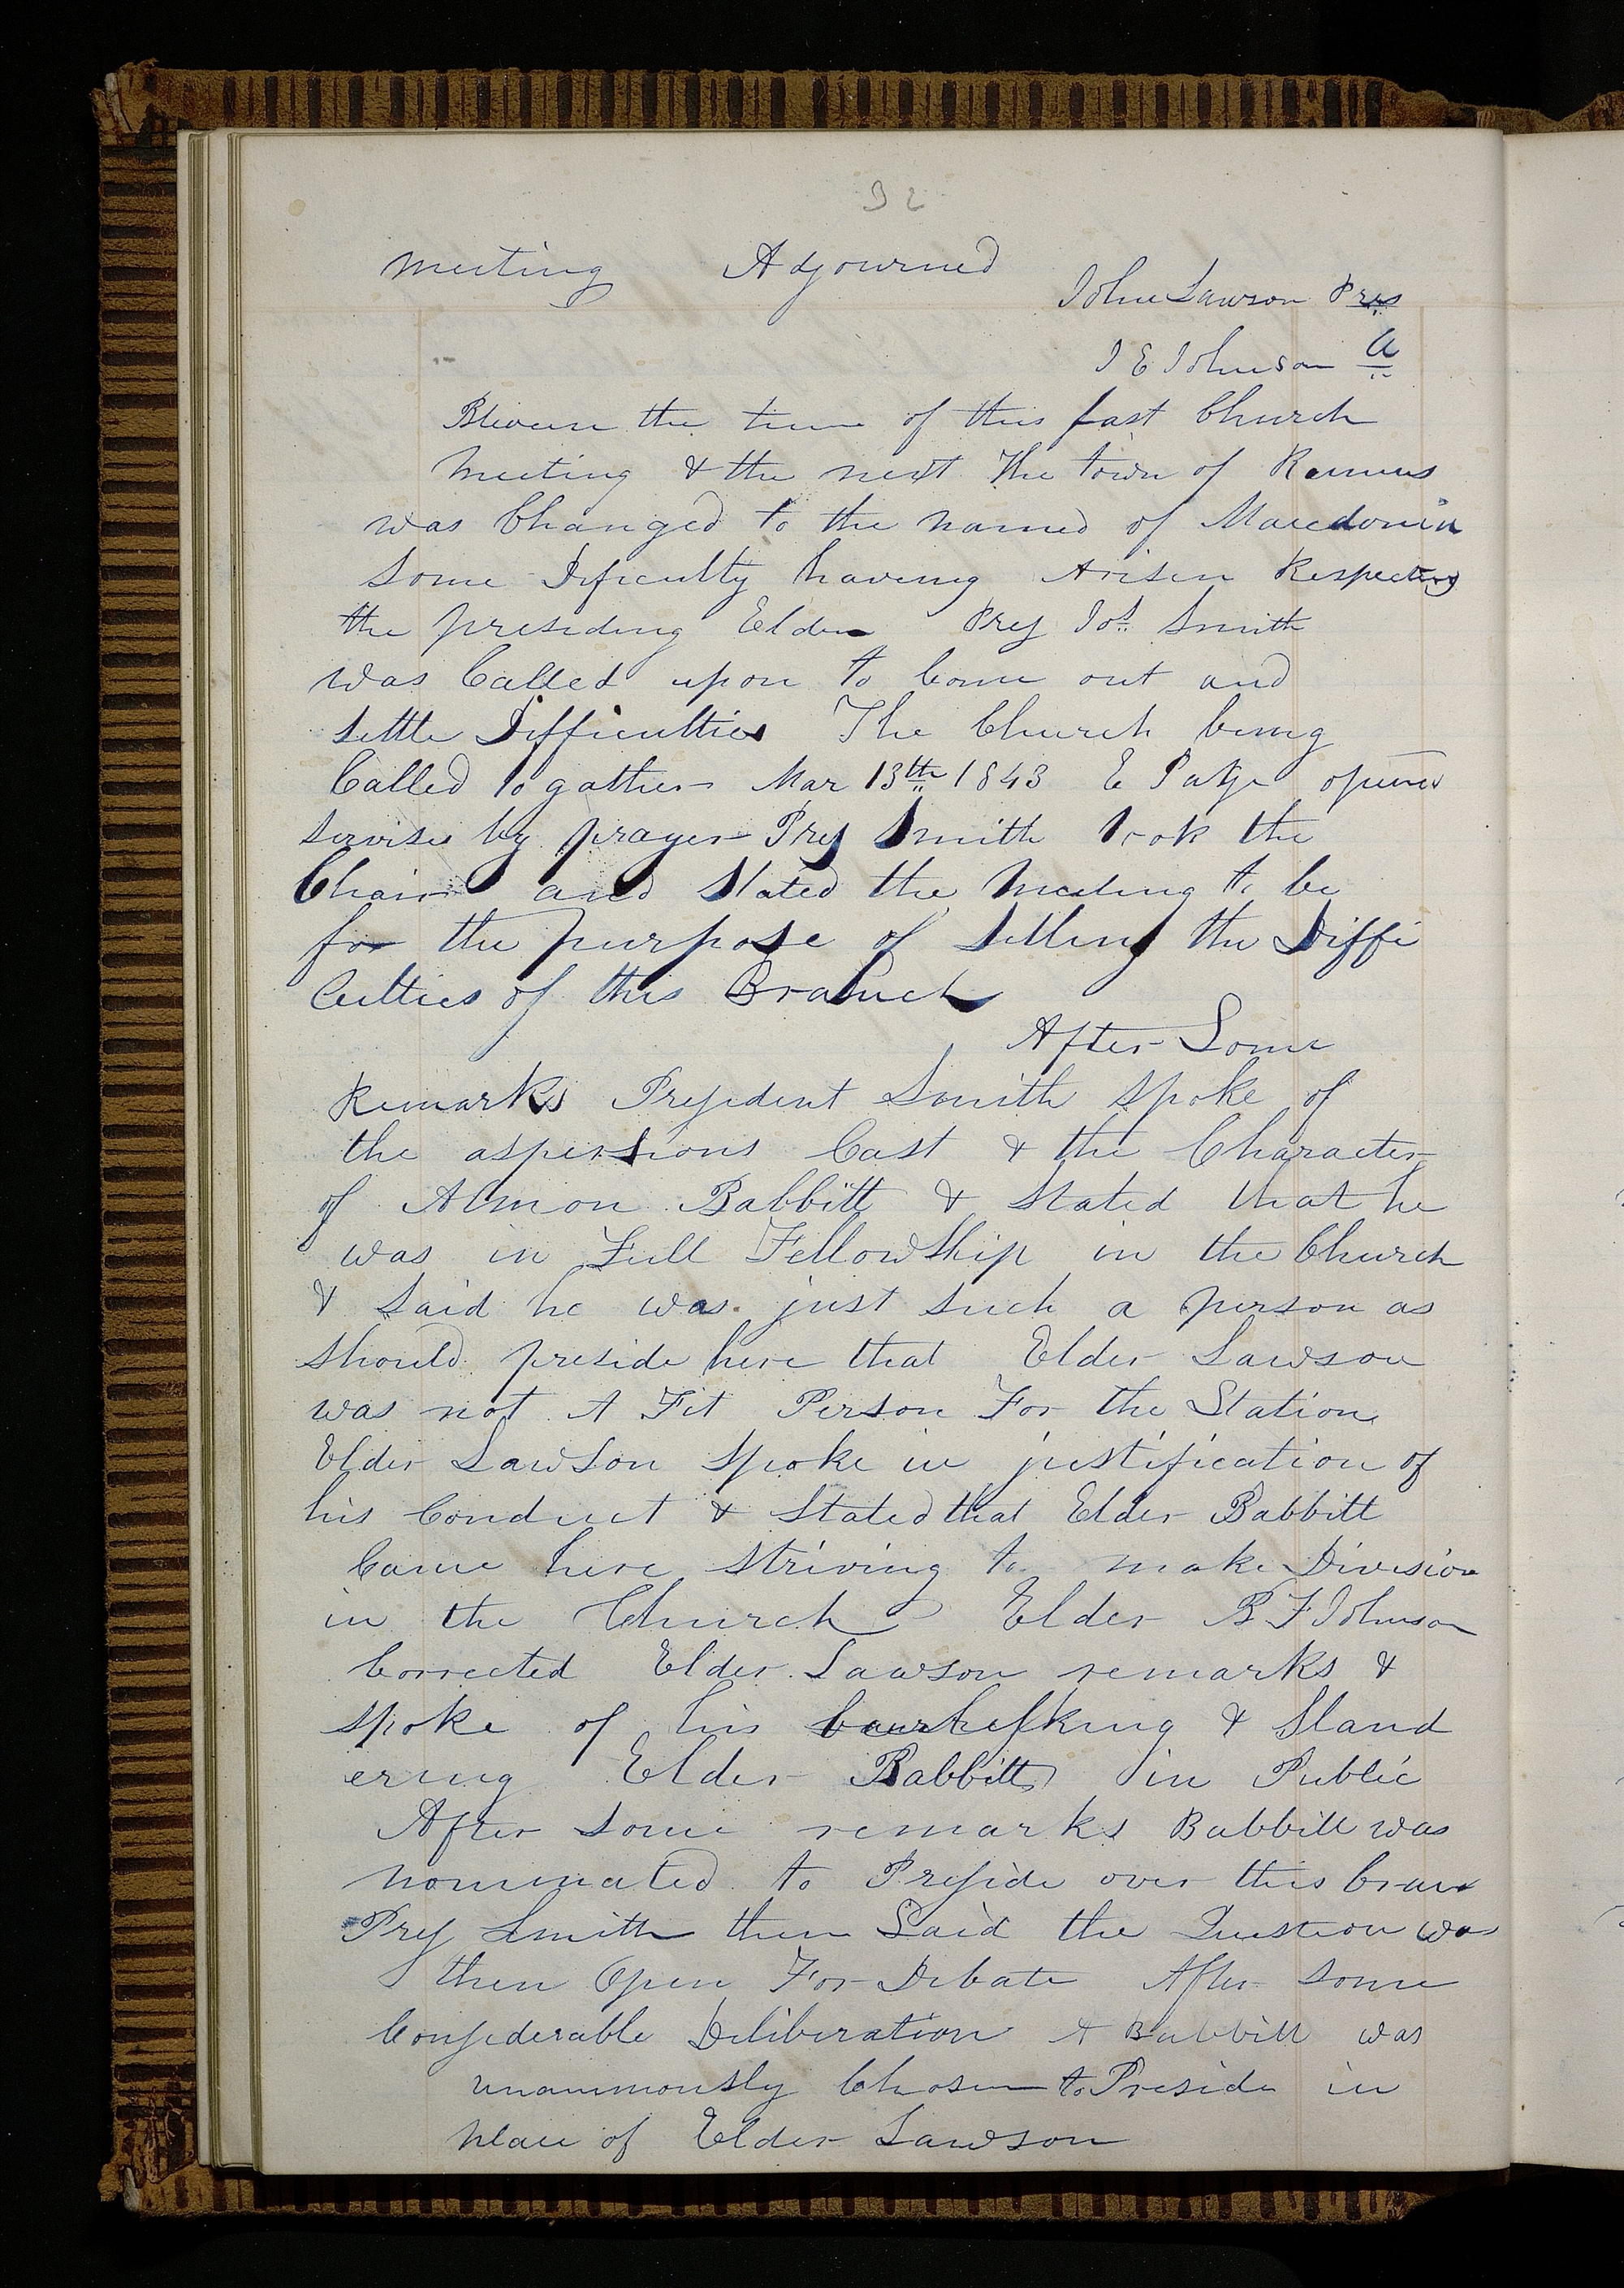 32
meeting Adjourned
John Lawson Pres
J E Johnson
Btween the time of this last Church
Meeting & the next The town of Ramus
was Changed to the named of Macedonia
Some Dificulty having Arisen Respecting
the presiding Elder Pres Jos. Smith
was Called upon to Come out and
settle Difficulties The Church being
Called to gather Mar 13th 1843 E Page opened
servises by prayer Pres Smith took the
Chair and Stated the Meeting to be
for the purpose of Settling the Diffi
culties of this Branch
After Some
Remarks President Smith spoke of
the aspersions Cast & the Character
of Almon Babbitt & Stated that he
was in Full FellowShip in the Church
& Said he was just such a person as
should preside here that Elder Lawson
was not A Fit Person For the Station
Elder Lawson Spoke in justification of
his Conduct & Stated that Elder Babbitt
Came here striving to make Division
in the Church Elder B F Johnson
Corrected Elder Lawson remarks &
spoke of his & Sland
ering Elder Babbitt in Public
After some remarks Babbitt was
nominated to Preside over this
Pres Smith then Said the Question was
then Open For Debate After some
Considerable Deliberation A Babbitt was
unanimously Chosen to Preside in
place of Elder Lawson